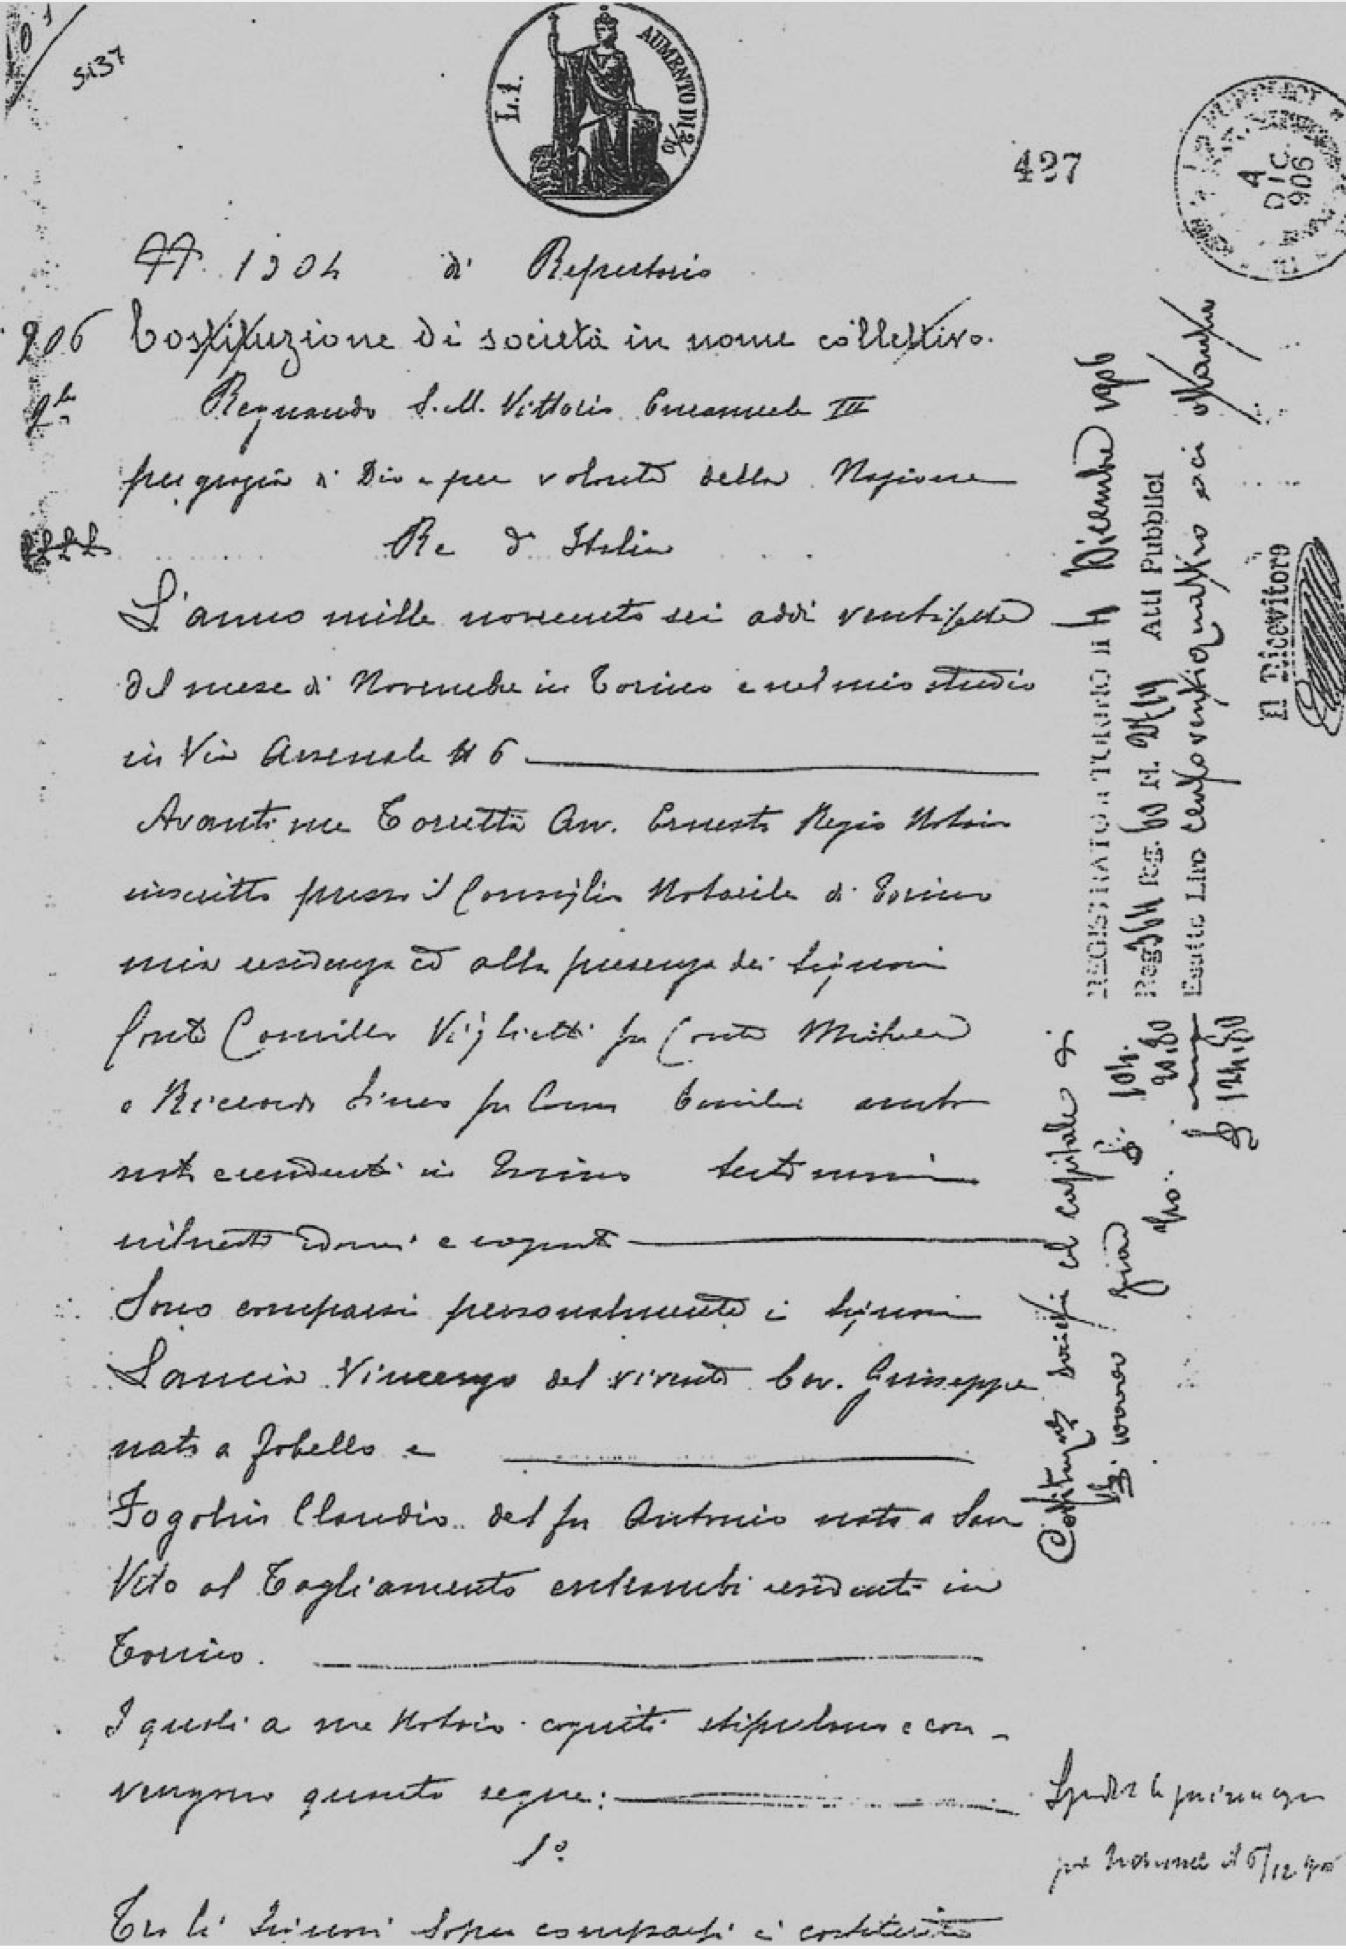 5137
L.1.
AUMENTO DI 2/10
427
4
DIC
906
N. 1304 di Repertorio
906 Costituzione di società in nome collettivo.
Regnando S. M. Vittorio Emanuele III
per grazia di Dio e per volontà della Nazione
Re d'Italia
L'anno mille novecento sei addì ventisette
del mese di Novembre in Torino e nel mio studio
in Via Arsenale N 6
Avanti me Torretta Avv. Ernesto Regio Notaio
inscritto presso il Consiglio Notarile di Torino
mia residenza ed alla presenza dei Signori
Conte Camillo Viglietti fu Conte Michele
e Riccardo fu Emilio
noti residenti in Torino testimoni
richiesti idonei e cogniti
Sono comparsi personalmente i Signori
Lancia Vincenzo del vivente Cav. Giuseppe
nato a Fobello e
Fogolin Claudio del fu Antonio nato a San
Vito al Tagliamento entrambi residenti in
Torino.
I quali a me Notaio cogniti stipulano e con-
vengono quanto segue:
1°
Tra li Signori sopra comparsi è costituita
REGISTRATO a TORINO il 4 Dicembre 1906
Reg. 60 N. Atti Pubblici
Esatte Lire centoventiquattro
Il Ricevitore
£. 104.
20.80
£ 124.80
società col capitale di
il 5/12